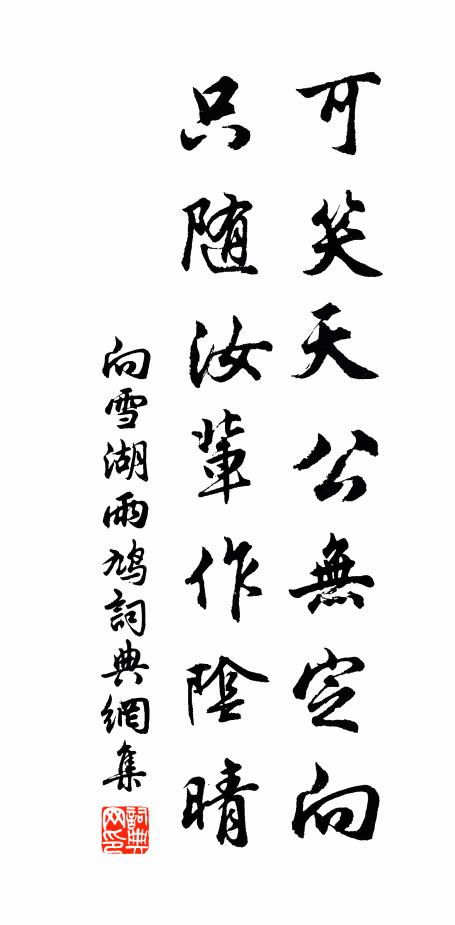 可笑天公無定向
只随汝輩作陰晴
向雪湖雨鳩詞典網集
詞典網印